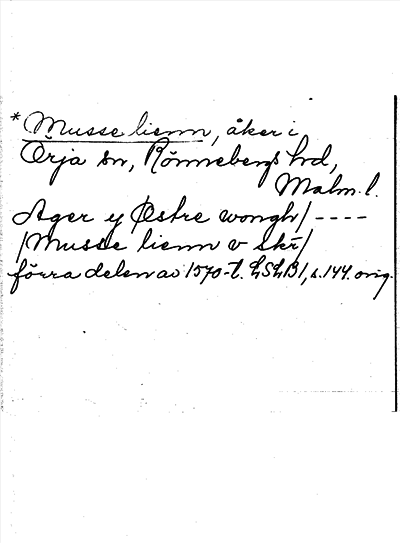 * Musse lienn, åker i
Örja sn, Rönnebergs hd,
Malm. l.
Ager y Østre wongh/----
/Musse lienn v skr/
förra delen av 1570-t. LSLB1, s. 144. orig.